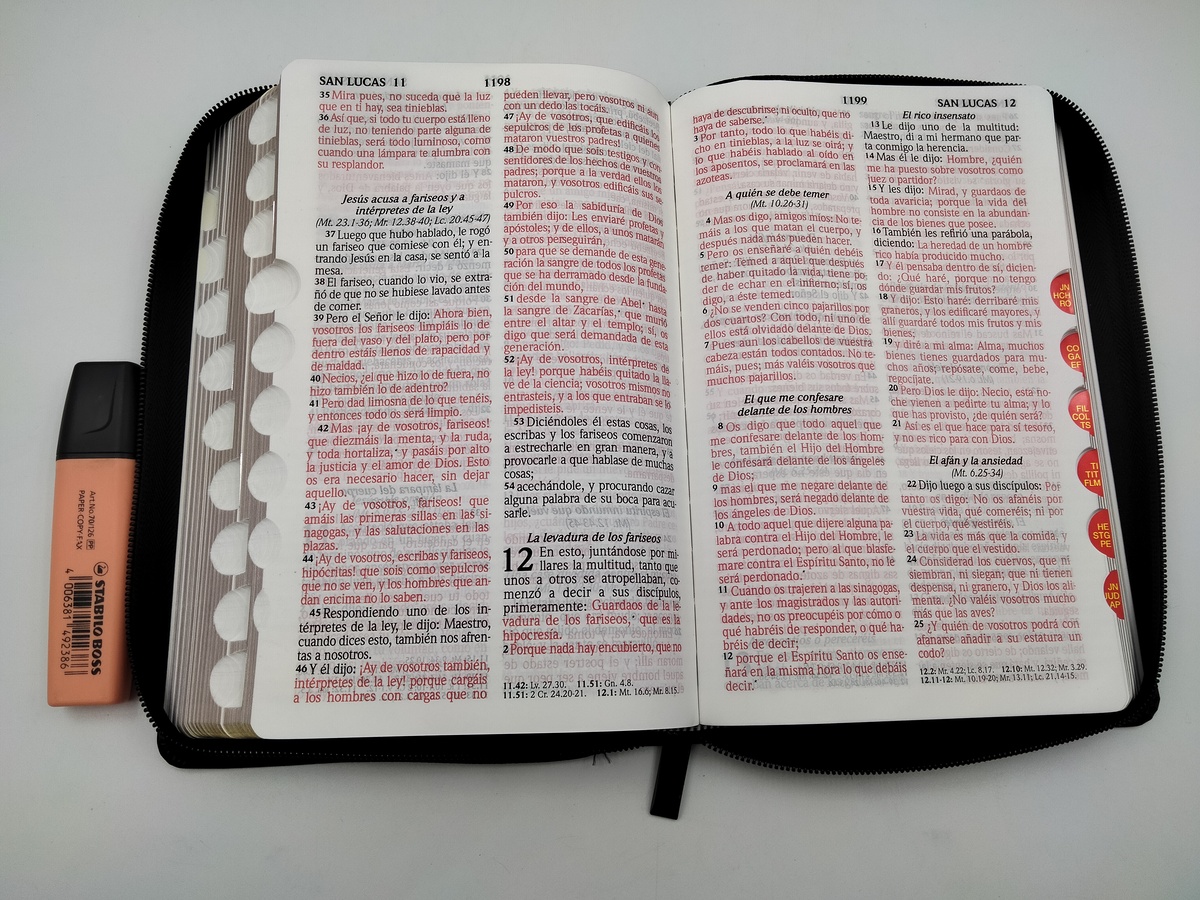 SAN LUCAS 11
1198
35 Mira pues, no suceda que la luz
que en ti hay, sea tinieblas.
36 Así que, si todo tu cuerpo está lleno
de luz, no teniendo parte alguna de
tinieblas, será todo luminoso, como
cuando una lámpara te alumbra con
su resplandor.
Jesús acusa a fariseos y a
intérpretes de la ley
(Mt. 23.1-36; Mr. 12.38-40; Lc. 20.45-47)
37 Luego que hubo hablado, le rogó
un fariseo que comiese con él; y en-
trando Jesús en la casa, se sentó a la
mesa.
38 El fariseo, cuando lo vio, se extra-
ñó de que no se hubiese lavado antes
de comer.
39 Pero el Señor le dijo: Ahora bien,
vosotros los fariseos limpiáis lo de
fuera del vaso y del plato, pero por
dentro estáis llenos de rapacidad y
de maldad.
40 Necios, ¿el que hizo lo de fuera, no
hizo también lo de adentro?
41 Pero dad limosna de lo que tenéis,
y entonces todo os será limpio.
42 Mas ¡ay de vosotros, fariseos!
que diezmáis la menta, y la ruda,
y toda hortaliza,* y pasáis por alto
la justicia y el amor de Dios. Esto
os era necesario hacer, sin dejar
aquello.
43 ¡Ay de vosotros, fariseos! que
amáis las primeras sillas en las si-
nagogas, y las salutaciones en las
plazas.
44 ¡Ay de vosotros, escribas y fariseos,
hipócritas! que sois como sepulcros
que no se ven, y los hombres que an-
dan encima no lo saben.
45 Respondiendo uno de los in-
térpretes de la ley, le dijo: Maestro,
cuando dices esto, también nos afren-
tas a nosotros.
46 Y él dijo: ¡Ay de vosotros también,
intérpretes de la ley! porque cargáis
a los hombres con cargas que no
pueden llevar, pero vosotros ni aun
con un dedo las tocáis.
47 ¡Ay de vosotros, que edificáis los
sepulcros de los profetas a quienes
mataron vuestros padres!
48 De modo que sois testigos y con-
sentidores de los hechos de vuestros
padres; porque a la verdad ellos los
mataron, y vosotros edificáis sus se-
pulcros.
49 Por eso la sabiduría de Dios
también dijo: Les enviaré profetas y
apóstoles; y de ellos, a unos matarán
y a otros perseguirán,
50 para que se demande de esta gene-
ración la sangre de todos los profetas
que se ha derramado desde la funda-
ción del mundo,
51 desde la sangre de Abel* hasta
la sangre de Zacarías,* que murió
entre el altar y el templo; sí, os
digo que será demandada de esta
generación.
52 ¡Ay de vosotros, intérpretes de
la ley! porque habéis quitado la lla-
ve de la ciencia; vosotros mismos no
entrasteis, y a los que entraban se lo
impedisteis.
53 Diciéndoles él estas cosas, los
escribas y los fariseos comenzaron
a estrecharle en gran manera, y a
provocarle a que hablase de muchas
cosas;
54 acechándole, y procurando cazar
alguna palabra de su boca para acu-
sarle.
La levadura de los fariseos
12 En esto, juntándose por mi-
llares la multitud, tanto que
unos a otros se atropellaban, co-
menzó a decir a sus discípulos,
primeramente: Guardaos de la le-
vadura de los fariseos,* que es la
hipocresía.
2 Porque nada hay encubierto, que no
11.42: Lv. 27.30. 11.51: Gn. 4.8.
11.51: 2 Cr. 24.20-21. 12.1: Mt. 16.6; Mr. 8.15.
1199
SAN LUCAS 12
haya de descubrirse; ni oculto, que no
haya de saberse.*
3 Por tanto, todo lo que habéis di-
cho en tinieblas, a la luz se oirá; y
lo que habéis hablado al oído en
los aposentos, se proclamará en las
azoteas.
A quién se debe temer
(Mt. 10.26-31)
4 Mas os digo, amigos míos: No te-
máis a los que matan el cuerpo, y
después nada más pueden hacer.
5 Pero os enseñaré a quién debéis
temer: Temed a aquel que después
de haber quitado la vida, tiene po-
der de echar en el infierno; sí, os
digo, a éste temed.
6 ¿No se venden cinco pajarillos por
dos cuartos? Con todo, ni uno de
ellos está olvidado delante de Dios.
7 Pues aun los cabellos de vuestra
cabeza están todos contados. No te-
máis, pues; más valéis vosotros que
muchos pajarillos.
El que me confesare
delante de los hombres
8 Os digo que todo aquel que
me confesare delante de los hom-
bres, también el Hijo del Hombre
le confesará delante de los ángeles
de Dios;
9 mas el que me negare delante de
los hombres, será negado delante de
los ángeles de Dios.
10 A todo aquel que dijere alguna pa-
labra contra el Hijo del Hombre, le
será perdonado; pero al que blasfe-
mare contra el Espíritu Santo, no le
será perdonado.*
11 Cuando os trajeren a las sinagogas,
y ante los magistrados y las autori-
dades, no os preocupéis por cómo o
qué habréis de responder, o qué ha-
bréis de decir;
12 porque el Espíritu Santo os ense-
ñará en la misma hora lo que debáis
decir.*
El rico insensato
13 Le dijo uno de la multitud:
Maestro, di a mi hermano que par-
ta conmigo la herencia.
14 Mas él le dijo: Hombre, ¿quién
me ha puesto sobre vosotros como
juez o partidor?
15 Y les dijo: Mirad, y guardaos de
toda avaricia; porque la vida del
hombre no consiste en la abundan-
cia de los bienes que posee.
16 También les refirió una parábola,
diciendo: La heredad de un hombre
rico había producido mucho.
17 Y él pensaba dentro de sí, dicien-
do: ¿Qué haré, porque no tengo
dónde guardar mis frutos?
18 Y dijo: Esto haré: derribaré mis
graneros, y los edificaré mayores, y
allí guardaré todos mis frutos y mis
bienes;
19 y diré a mi alma: Alma, muchos
bienes tienes guardados para mu-
chos años; repósate, come, bebe,
regocíjate.
20 Pero Dios le dijo: Necio, esta no-
che vienen a pedirte tu alma; y lo
que has provisto, ¿de quién será?
21 Así es el que hace para sí tesoro,
y no es rico para con Dios.
El afán y la ansiedad
(Mt. 6.25-34)
22 Dijo luego a sus discípulos: Por
tanto os digo: No os afanéis por
vuestra vida, qué comeréis; ni por
el cuerpo, qué vestiréis.
23 La vida es más que la comida, y
el cuerpo que el vestido.
24 Considerad los cuervos, que ni
siembran, ni siegan; que ni tienen
despensa, ni granero, y Dios los ali-
menta. ¿No valéis vosotros mucho
más que las aves?
25 ¿Y quién de vosotros podrá con
afanarse añadir a su estatura un
codo?
12.2: Mr. 4.22; Lc. 8.17. 12.10: Mt. 12.32; Mr. 3.29.
12.11-12: Mt. 10.19-20; Mr. 13.11; Lc. 21.14-15.
JN
HCH
RO
CO
GA
EF
FIL
COL
TS
TI
TIT
FLM
HE
STG
PE
JN
JUD
AP
Art.No. 70/126 PP
PAPER-COPY-FAX
STABILO BOSS
4 006381 492386